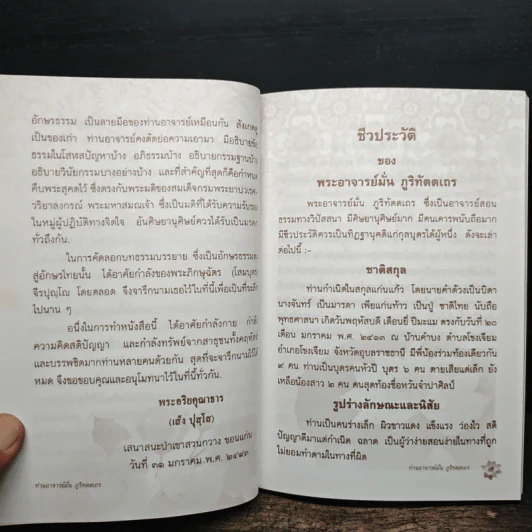 อักษรธรรม เป็นลายมือของท่านอาจารย์เหมือนกัน สังเกตดู
เป็นของเก่า ท่านอาจารย์คงคัดย่อความเอามา มีอธิบายข้อ
ธรรมในโสฬสปัญหาบ้าง อภิธรรมบ้าง อธิบายกรรมฐานบ้าง
อธิบายวินัยกรรมบางอย่างบ้าง และที่สำคัญที่สุดก็คือกำหนด
คืนพระสุคตไว้ ซึ่งตรงกับพระมติของสมเด็จกรมพระยาปวเรศ
วริยาลงกรณ์ พระมหาสมณเจ้า เป็นมติที่ได้รับความรับรอง
ในหมู่ผู้ปฏิบัติทางจิตใจ อันศิษยานุศิษย์ควรได้รับเป็นมรดก
ทั่วถึงกัน
ในการคัดลอกบทธรรมบรรยาย ซึ่งเป็นอักษรธรรมลง
สู่อักษรไทยนั้น ได้อาศัยกำลังของพระภิกษุฉัตร (โสมบุตร)
จีรปุญฺโญ โดยตลอด จึงจารึกนามเธอไว้ในที่นี้เพื่อเป็นที่ระลึก
ไปนาน ๆ
อนึ่งในการทำหนังสือนี้ ได้อาศัยกำลังกาย กำลัง
ความคิดสติปัญญา และกำลังทรัพย์จากสาธุชนทั้งคฤหัสถ์
และบรรพชิตมากท่านหลายคนด้วยกัน สุดที่จะจารึกนามไว้ได้
หมด จึงขอขอบคุณและอนุโมทนาไว้ในที่นี้ทั่วกัน.
พระอริยคุณาธาร
(เส็ง ปุสฺโส)
เสนาสนะป่าเขาสวนกวาง ขอนแก่น
วันที่ ๓๑ มกราคม พ.ศ. ๒๔๙๓
ท่านอาจารย์มั่น ภูริทัตตเถร
ชีวประวัติ
ของ
พระอาจารย์มั่น ภูริทัตตเถร
พระอาจารย์มั่น ภูริทัตตเถร ซึ่งเป็นอาจารย์สอน
ธรรมทางวิปัสสนา มีศิษยานุศิษย์มาก มีคนเคารพนับถือมาก
มีชีวประวัติควรเป็นทิฏฐานุคติแก่กุลบุตรได้ผู้หนึ่ง ดังจะเล่า
ต่อไปนี้ :-
ชาติสกุล
ท่านกำเนิดในสกุลแก่นแก้ว โดยนายคำด้วงเป็นบิดา
นางจันทร์ เป็นมารดา เพียแก่นท้าว เป็นปู่ ชาติไทย นับถือ
พุทธศาสนา เกิดวันพฤหัสบดี เดือนยี่ ปีมะแม ตรงกับวันที่ ๒๐
เดือน มกราคม พ.ศ. ๒๔๑๓ ณ บ้านคำบง ตำบลโขงเจียม
อำเภอโขงเจียม จังหวัดอุบลราชธานี มีพี่น้องร่วมท้องเดียวกัน
๙ คน ท่านเป็นบุตรคนหัวปี บุตร ๖ คน ตายเสียแต่เล็ก ยัง
เหลือน้องสาว ๒ คน คนสุดท้องชื่อหวันจำปาศิลป์
รูปร่างลักษณะและนิสัย
ท่านเป็นคนร่างเล็ก ผิวขาวแดง แข็งแรง ว่องไว สติ
ปัญญาดีมาแต่กำเนิด ฉลาด เป็นผู้ว่าง่ายสอนง่ายในทางที่ถูก
ไม่ยอมทำตามในทางที่ผิด
ท่านอาจารย์มั่น ภูริทัตตเถร